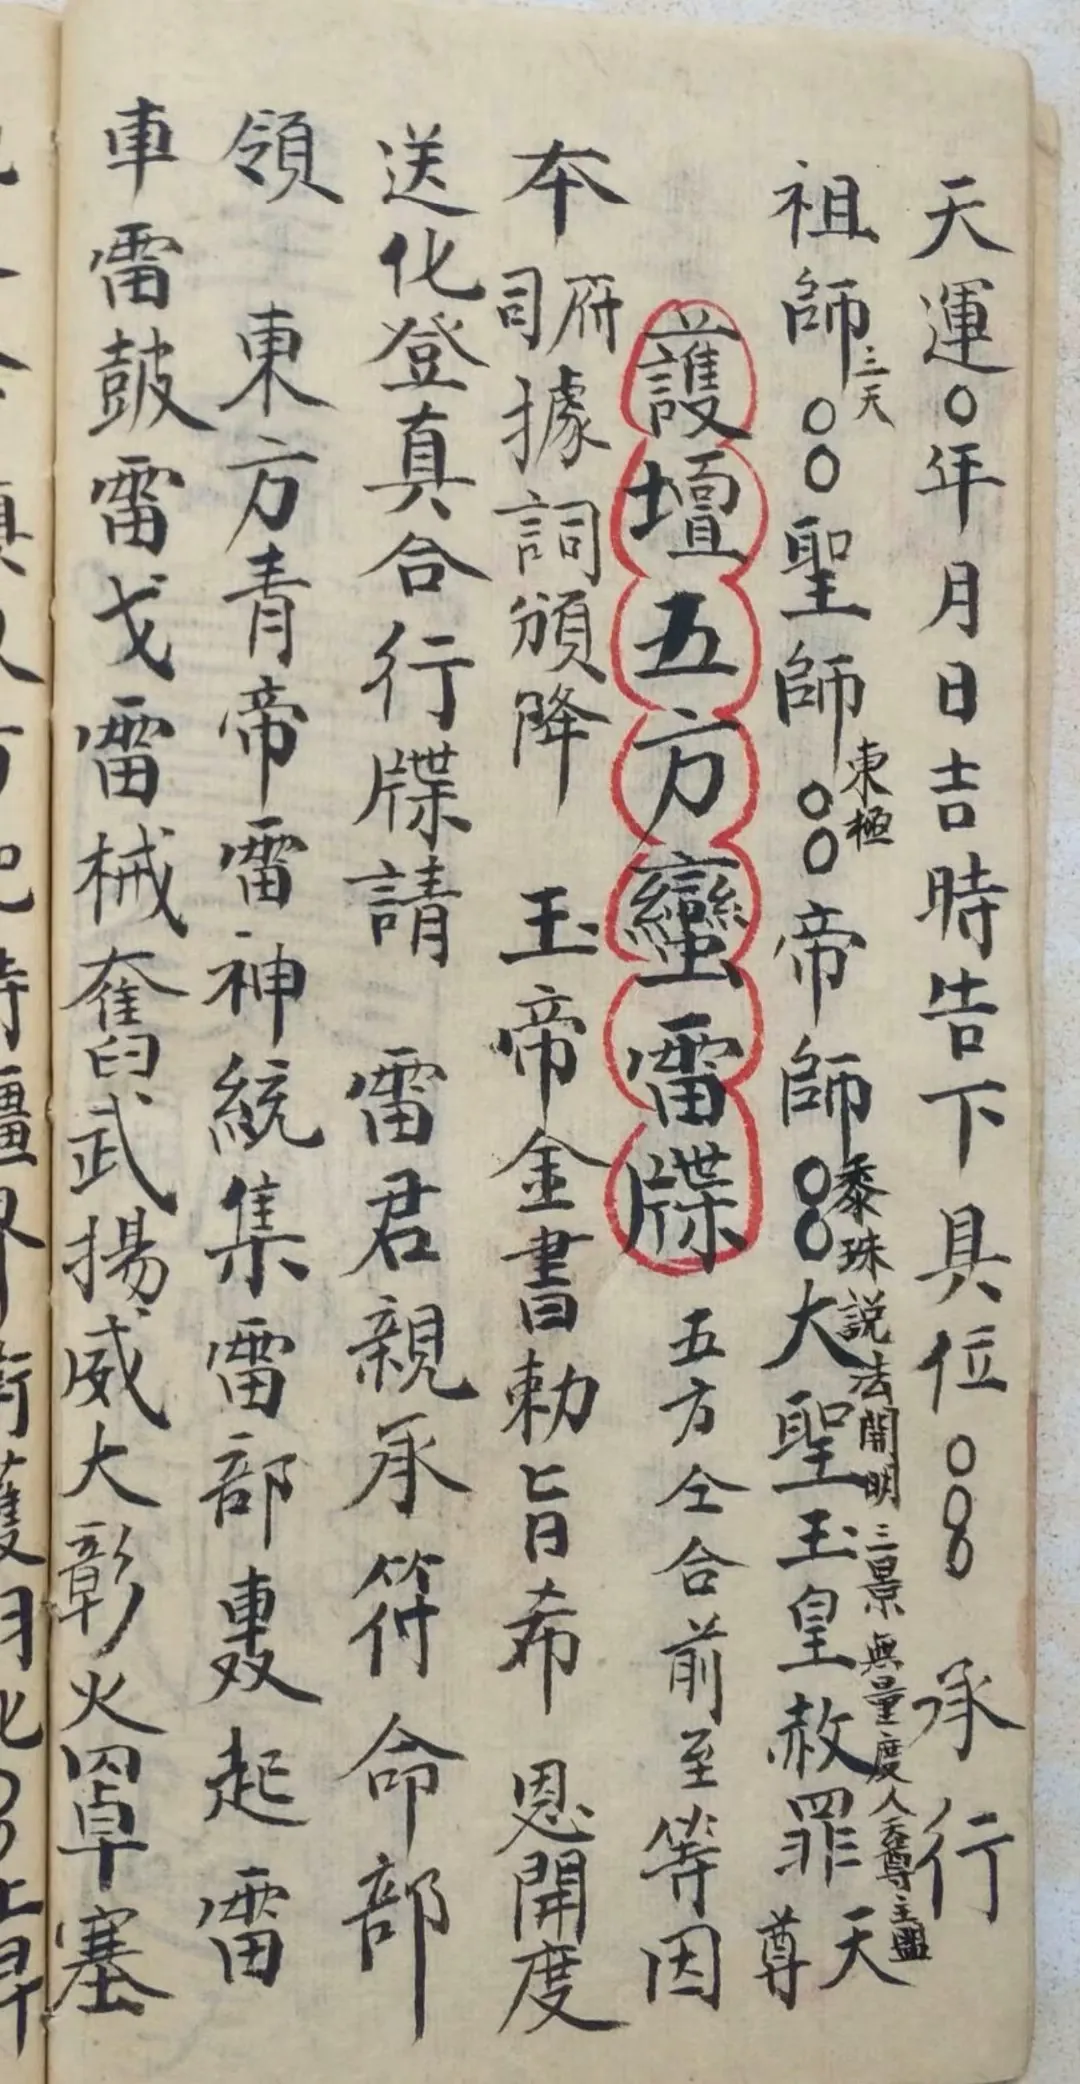 天運〇年月日吉時告下具位〇〇〇承行
祖師三天〇〇聖師東極〇〇帝師〇〇大聖玉皇赦罪天尊
黍珠說法開明三景無量度人天尊主盟
護壇五方蠻雷牒 五方仝合前至等因
本府司據詞頒降 玉帝金書勅旨希 恩開度
送化登真合行牒請 雷君親承符命部
領 東方青帝雷神統集雷部轟起雷
車雷鼓雷戈雷械奮武揚威大彰火罩塞